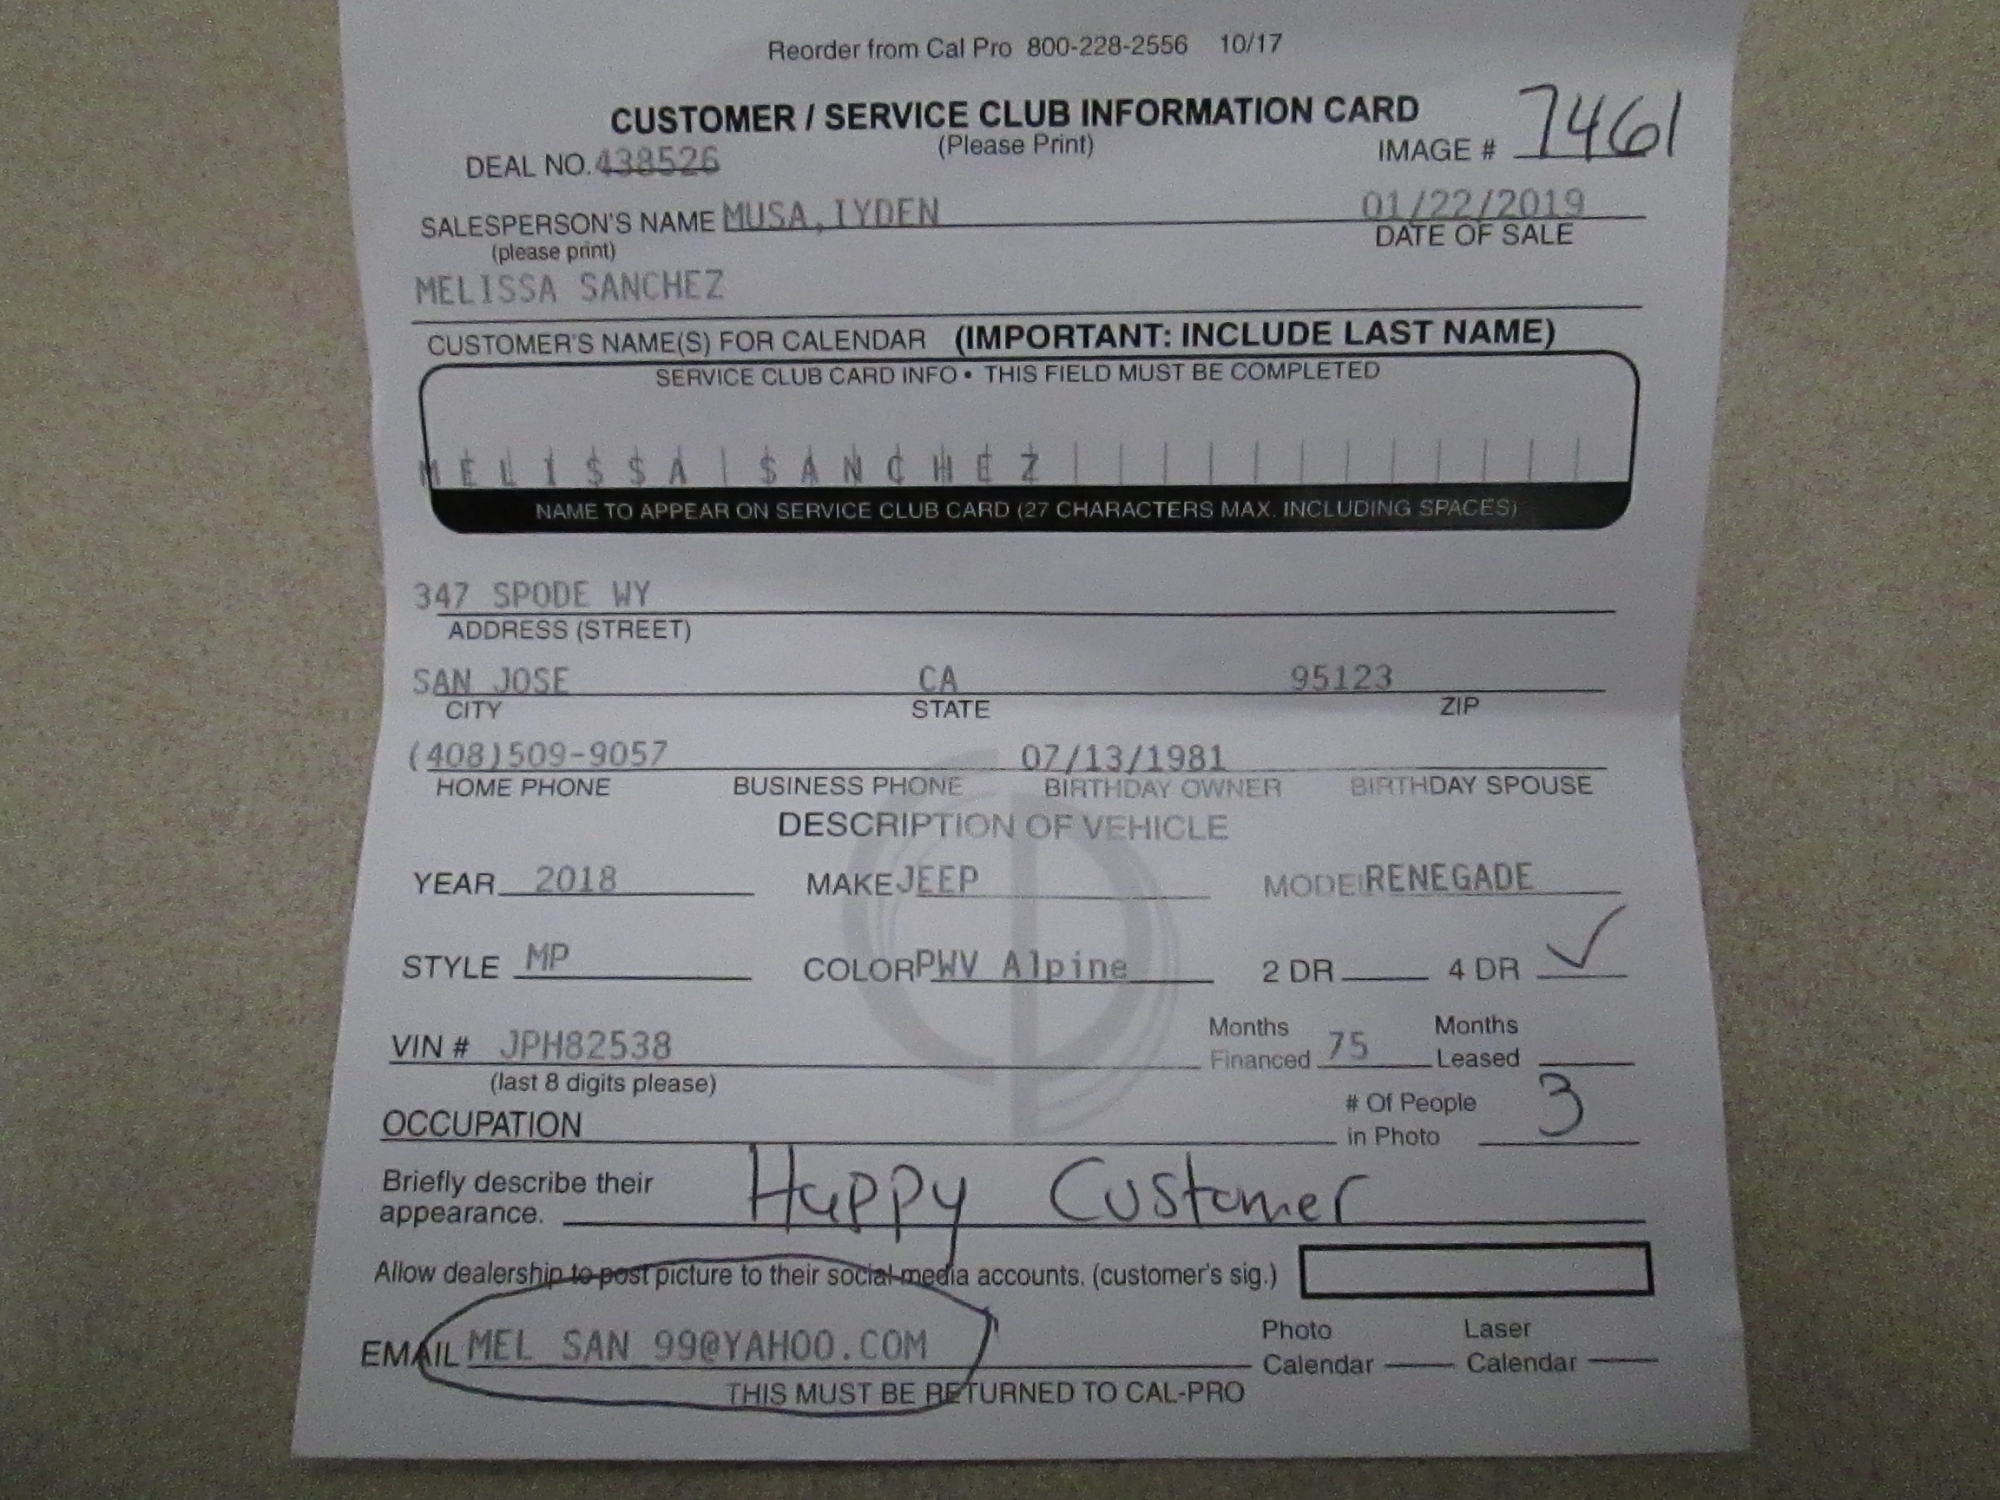 Reorder from Cal Pro 800-228-2556 10/17
CUSTOMER / SERVICE CLUB INFORMATION CARD
(Please Print)
DEAL NO. 438526 IMAGE # 7461
SALESPERSON'S NAME MUSA, IYDEN 01/22/2019
(please print) DATE OF SALE
MELISSA SANCHEZ
CUSTOMER'S NAME(S) FOR CALENDAR (IMPORTANT: INCLUDE LAST NAME)
SERVICE CLUB CARD INFO • THIS FIELD MUST BE COMPLETED
MELISSA SANCHEZ
NAME TO APPEAR ON SERVICE CLUB CARD (27 CHARACTERS MAX. INCLUDING SPACES)
347 SPODE WY
ADDRESS (STREET)
SAN JOSE CA 95123
CITY STATE ZIP
(408)509-9057 07/13/1981
HOME PHONE BUSINESS PHONE BIRTHDAY OWNER BIRTHDAY SPOUSE
DESCRIPTION OF VEHICLE
YEAR 2018 MAKE JEEP MODEL RENEGADE
STYLE MP COLOR PWV Alpine 2 DR 4 DR ✓
VIN # JPH82538 Months Financed 75 Months Leased
(last 8 digits please)
OCCUPATION # Of People in Photo 3
Briefly describe their appearance. Happy Customer
Allow dealership to post picture to their social media accounts. (customer's sig.)
EMAIL MEL SAN 99@YAHOO.COM Photo Calendar Laser Calendar
THIS MUST BE RETURNED TO CAL-PRO